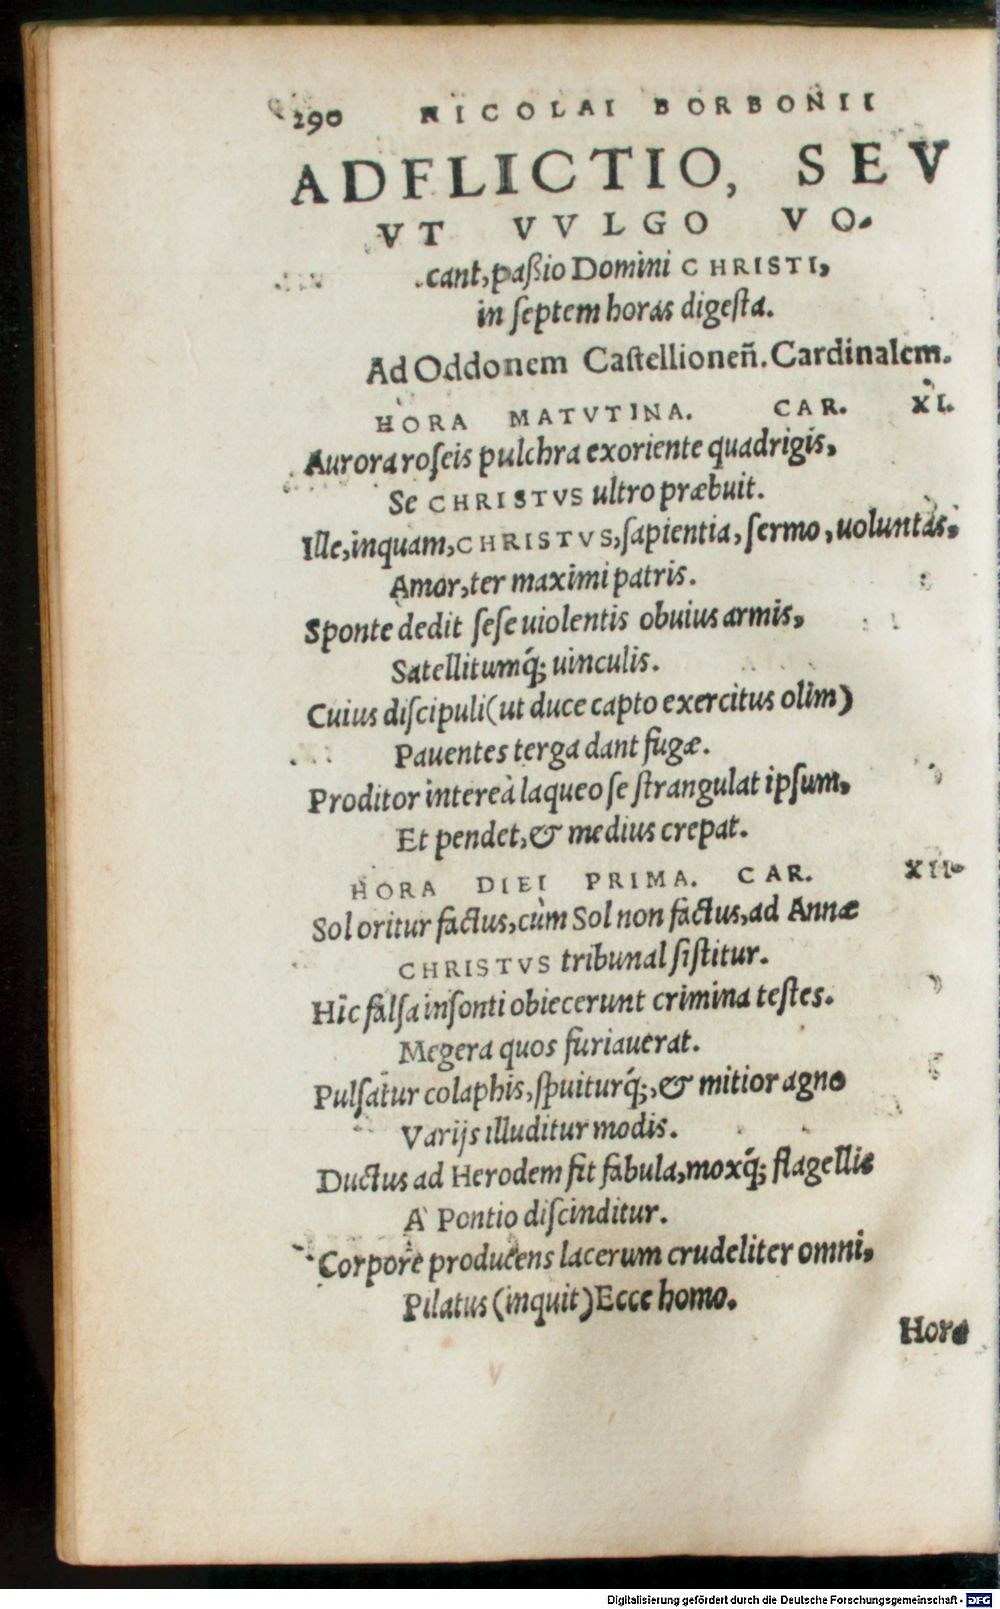 290 NICOLAI BORBONII
ADFLICTIO, SEV
VT VVLGO VO-
cant, paßio Domini CHRISTI,
in ſeptem horas digeſta.
Ad Oddonem Caſtellioneñ. Cardinalem.
HORA MATVTINA. CAR. XI.
Aurora roſeis pulchra exoriente quadrigis,
Se CHRISTVS ultro præbuit.
Ille, inquam, CHRISTVS, ſapientia, ſermo, uoluntas,
Amor, ter maximi patris.
Sponte dedit ſeſe uiolentis obuius armis,
Satellitumq́; uinculis.
Cuius diſcipuli (ut duce capto exercitus olim)
Pauentes terga dant fugæ.
Proditor intereà laqueo ſe ſtrangulat ipſum,
Et pendet, & medius crepat.
HORA DIEI PRIMA. CAR. XII.
Sol oritur factus, cùm Sol non factus, ad Annæ
CHRISTVS tribunal ſiſtitur.
Hîc falſa inſonti obiecerunt crimina teſtes.
Megera quos furiauerat.
Pulſatur colaphis, ſpuiturq́;, & mitior agno
Varijs illuditur modis.
Ductus ad Herodem fit fabula, moxq́; flagellis
A' Pontio diſcinditur.
Corpore producens lacerum crudeliter omni,
Pilatus (inquit) Ecce homo.
Hora
Digitalisierung gefördert durch die Deutsche Forschungsgemeinschaft - DFG